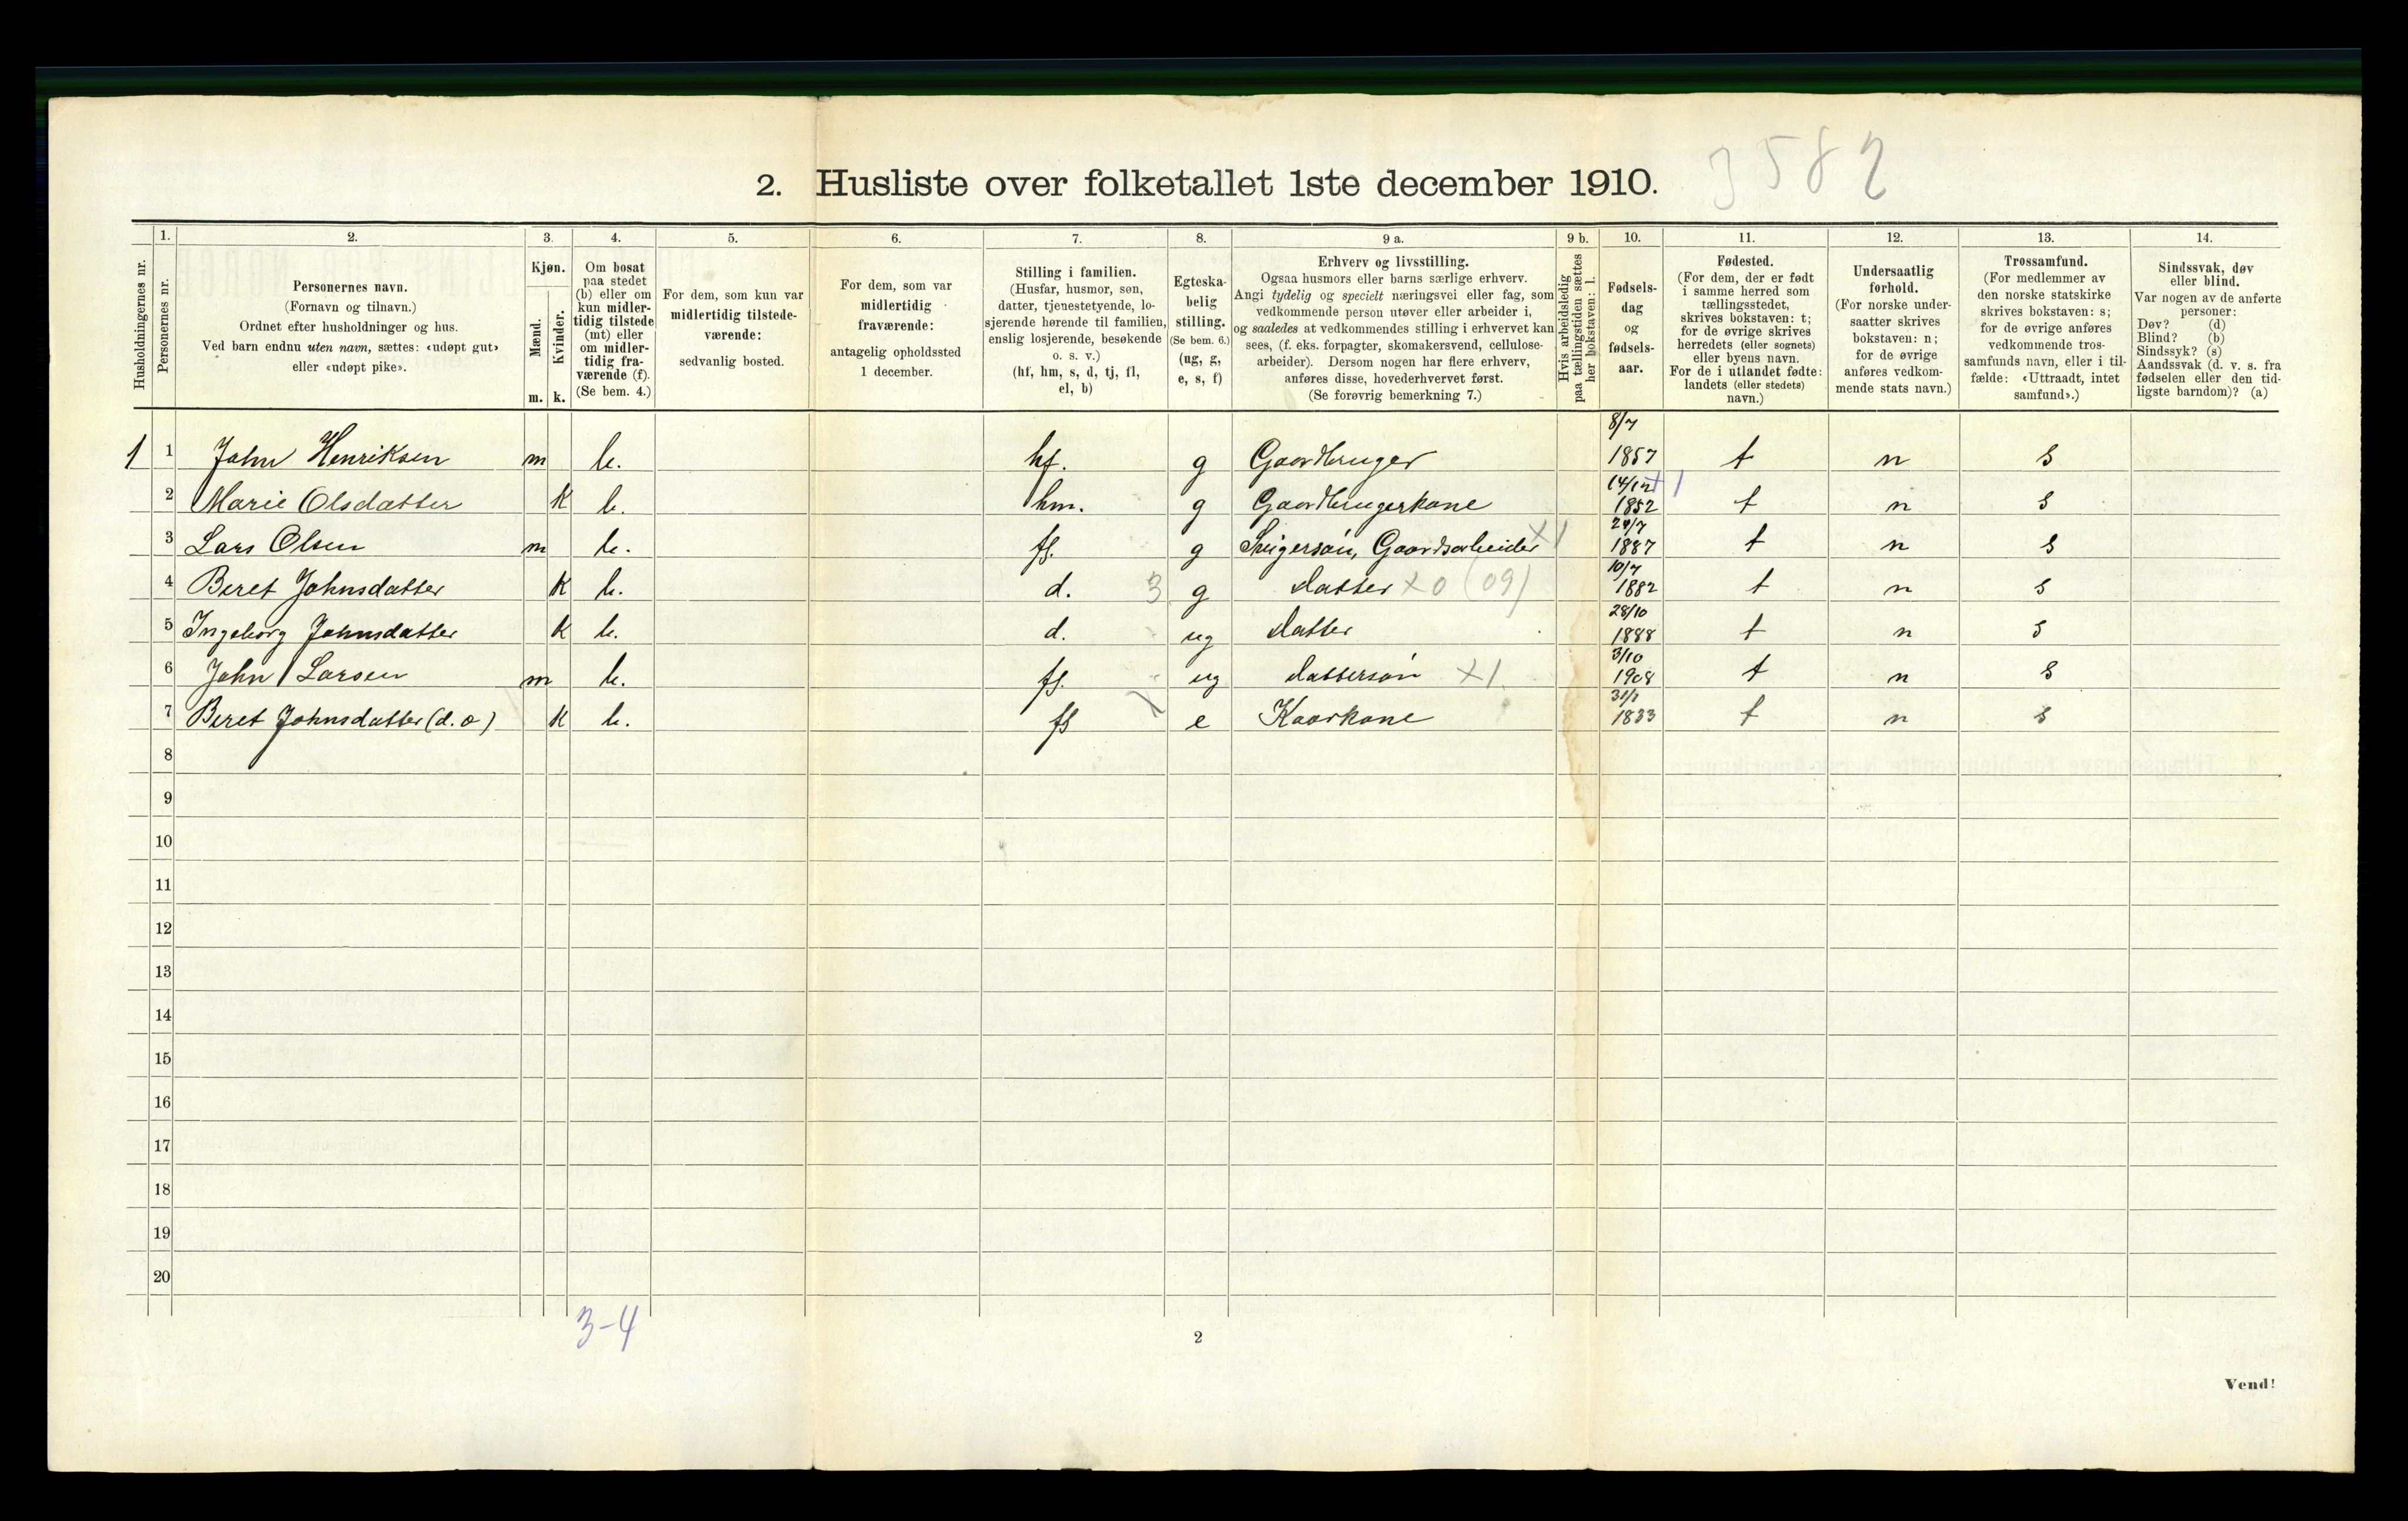 3582
2. Husliste over folketallet 1ste december 1910.
Husholdningernes nr.
1.
Personernes nr.
2.
Personernes navn.
(Fornavn og tilnavn.)
Ordnet efter husholdninger og hus.
Ved barn endnu uten navn, sættes: «udøpt gut»
eller «udøpt pike».
3.
Kjøn.
Mænd.
Kvinder.
m. k.
4.
Om bosat
paa stedet
(b) eller om
kun midler-
tidig tilstede
(mt) eller
om midler-
tidig fra-
værende (f).
(Se bem. 4.)
5.
For dem, som kun var
midlertidig tilstede-
værende:
sedvanlig bosted.
6.
For dem, som var
midlertidig
fraværende:
antagelig opholdssted
1 december.
7.
Stilling i familien.
(Husfar, husmor, søn,
datter, tjenestetyende, lo-
sjerende hørende til familien,
enslig losjerende, besøkende
o. s. v.)
(hf, hm, s, d, tj, fl,
el, b)
8.
Egteska-
belig
stilling.
(Se bem. 6.)
(ug, g,
e, s, f)
9 a.
Erhverv og livsstilling.
Ogsaa husmors eller barns særlige erhverv.
Angi tydelig og specielt næringsvei eller fag, som
vedkommende person utøver eller arbeider i,
og saaledes at vedkommendes stilling i erhvervet kan
sees, (f. eks. forpagter, skomakersvend, cellulose-
arbeider). Dersom nogen har flere erhverv,
anføres disse, hovederhvervet først.
(Se forøvrig bemerkning 7.)
9 b.
Hvis arbeidsledig
paa tællingstiden sættes
her bokstaven: l.
10.
Fødsels-
dag
og
fødsels-
aar.
11.
Fødested.
(For dem, der er født
i samme herred som
tællingsstedet,
skrives bokstaven: t;
for de øvrige skrives
herredets (eller sognets)
eller byens navn.
For de i utlandet fødte:
landets (eller stedets)
navn.)
12.
Undersaatlig
forhold.
(For norske under-
saatter skrives
bokstaven: n;
for de øvrige
anføres vedkom-
mende stats navn.)
13.
Trossamfund.
(For medlemmer av
den norske statskirke
skrives bokstaven: s;
for de øvrige anføres
vedkommende tros-
samfunds navn, eller i til-
fælde: «Uttraadt, intet
samfund».)
14.
Sindssvak, døv
eller blind.
Var nogen av de anførte
personer:
Døv? (d)
Blind? (b)
Sindssyk? (s)
Aandssvak (d. v. s. fra
fødselen eller den tid-
ligste barndom)? (a)
1 1 John Henriksen m b. hf. g Gaardbruger 8/7 1857 t n s
2 Marie Olsdatter k b. hm. g Gaardbrugerkone 14/12 1852 t n s
3 Lars Olsen m b. fl. g Svigersøn, Gaardsarbeider x1 24/7 1887 t n s
4 Beret Johnsdatter k b. d. 3 g datter x 0 (09) 10/7 1882 t n s
5 Ingeborg Johnsdatter k b. d. ug datter 28/10 1888 t n s
6 John Larsen m b. fl. ug dattersøn x1 3/10 1908 t n s
7 Beret Johnsdatter (d. æ) k b. fl e Kaarkone 31/1 1833 t n s
8
9
10
11
12
13
14
15
16
17
18
19
20
3-4
2
Vend!